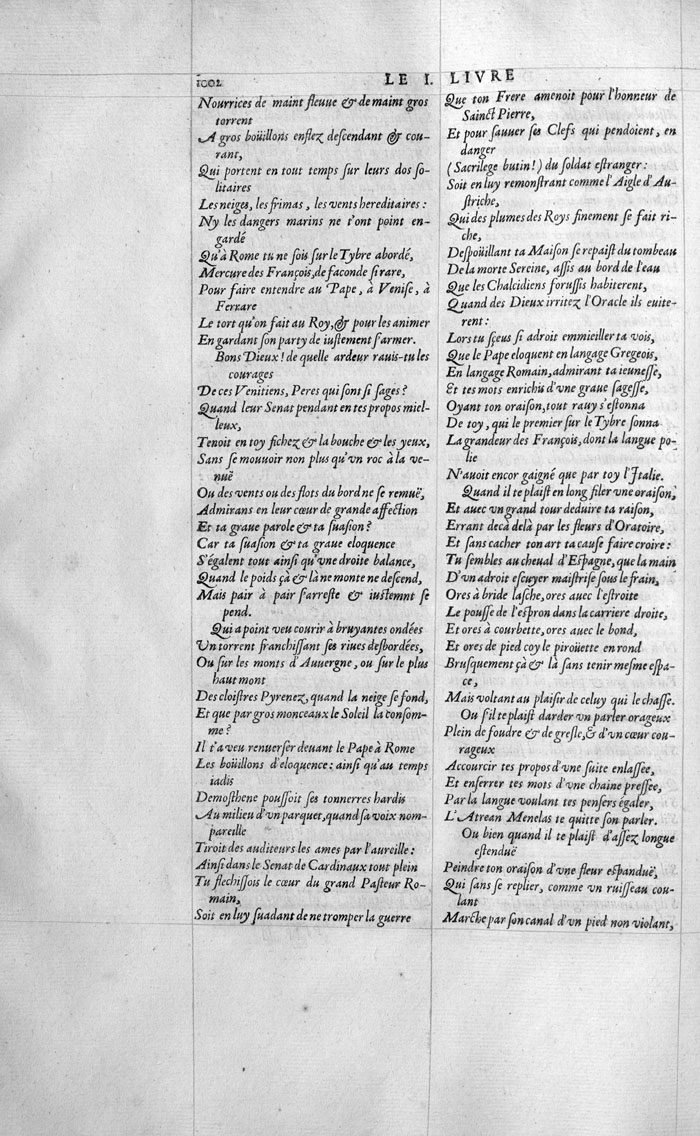 1002
LE I. LIVRE
Nourrices de maint fleuue & de maint gros
torrent
A gros boüillons enflez descendant & cou-
rant,
Qui portent en tout temps sur leurs dos so-
litaires
Les neiges, les frimas, les vents hereditaires:
Ny les dangers marins ne t'ont point en-
gardé
Qu'à Rome tu ne sois sur le Tybre abordé,
Mercure des François, de faconde si rare,
Pour faire entendre au Pape, à Venise, à
Ferrare
Le tort qu'on fait au Roy, & pour les animer
En gardant son party de iustement s'armer.
Bons Dieux! de quelle ardeur rauis-tu les
courages
De ces Venitiens, Peres qui sont si sages?
Quand leur Senat pendant en tes propos miel-
leux,
Tenoit en toy fichez & la bouche & les yeux,
Sans se mouuoir non plus qu'vn roc à la ve-
nuë
Ou des vents ou des flots du bord ne se remuë,
Admirans en leur cœur de grande affection
Et ta graue parole & ta suasion?
Car ta suasion & ta graue eloquence
S'égalent tout ainsi qu'vne droite balance,
Quand le poids çà & là ne monte ne descend,
Mais pair à pair s'arreste & iustemnt se
pend.
Qui a point veu courir à bruyantes ondées
Vn torrent franchissant ses riues desbordées,
Ou sur les monts d'Auuergne, ou sur le plus
haut mont
Des cloistres Pyrenez, quand la neige se fond,
Et que par gros monceaux le Soleil la consom-
me?
Il t'a veu renuerser deuant le Pape à Rome
Les boüillons d'eloquence: ainsi qu'au temps
iadis
Demosthene poussoit ses tonnerres hardis
Au milieu d'vn parquet, quand sa voix nom-
pareille
Tiroit des auditeurs les ames par l'aureille:
Ainsi dans le Senat de Cardinaux tout plein
Tu flechissois le cœur du grand Pasteur Ro-
main,
Soit en luy suadant de ne tromper la guerre
Que ton Frere amenoit pour l'honneur de
Sainct Pierre,
Et pour sauuer ses Clefs qui pendoient, en
danger
(Sacrilege butin!) du soldat estranger:
Soit en luy remonstrant comme l'Aigle d'Au-
striche,
Qui des plumes des Roys finement se fait ri-
che,
Despoüillant ta Maison se repaist du tombeau
De la morte Sereine, assis au bord de l'eau
Que les Chalcidiens forussis habiterent,
Quand des Dieux irritez l'Oracle ils euite-
rent:
Lors tu sçeus si adroit emmieiller ta vois,
Que le Pape eloquent en langage Gregeois,
En langage Romain, admirant ta ieunesse,
Et tes mots enrichis d'vne graue sagesse,
Oyant ton oraison, tout rauy s'estonna
De toy, qui le premier sur le Tybre sonna
La grandeur des François, dont la langue po-
lie
N'auoit encor gaigné que par toy l'Italie.
Quand il te plaist en long filer vne oraison,
Et auec vn grand tour deduire ta raison,
Errant decà delà par les fleurs d'Oratoire,
Et sans cacher ton art ta cause faire croire:
Tu sembles au cheual d'Espagne, que la main
D'vn adroit escuyer maistrise sous le frain,
Ores à bride lasche, ores auec l'estroite
Le pousse de l'espron dans la carriere droite,
Et ores à courbette, ores auec le bond,
Et ores de pied coy le piroüette en rond
Brusquement çà & là sans tenir mesme espa-
ce,
Mais voltant au plaisir de celuy qui le chasse.
Ou s'il te plaist darder vn parler orageux
Plein de foudre & de gresle, & d'vn cœur cou-
rageux
Accourcir tes propos d'vne suite enlassée,
Et enserrer tes mots d'vne chaine pressée,
Par la langue voulant tes pensers égaler,
L'Atrean Menelas te quitte son parler.
Ou bien quand il te plaist d'assez longue
estenduë
Peindre ton oraison d'vne fleur espanduë,
Qui sans se replier, comme vn ruisseau cou-
lant
Marche par son canal d'vn pied non violant,